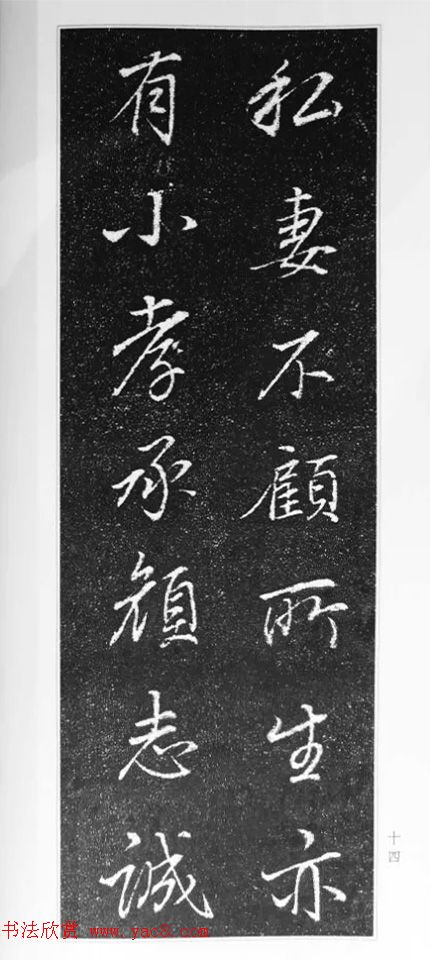 私妻不顧所生亦
有小孝承顏志誠
十四
书法欣赏 www.yac8.com